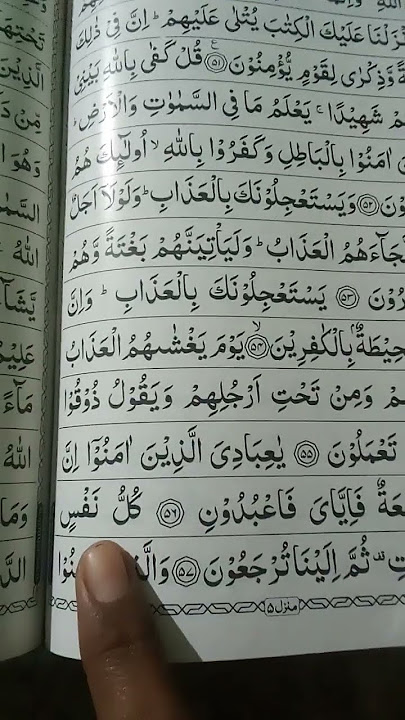 نْزَلْنَا عَلَيْكَ الْكِتٰبَ يُتْلٰى عَلَيْهِمْ ؕ اِنَّ فِيْ ذٰلِكَ
ةً وَّ ذِكْرٰى لِقَوْمٍ يُّؤْمِنُوْنَ ﴿۵۱﴾ قُلْ كَفٰى بِاللّٰهِ بَيْنِيْ
مْ شَهِيْدًا ۚ يَعْلَمُ مَا فِي السَّمٰوٰتِ وَ الْاَرْضِ ؕ
نَ اٰمَنُوْا بِالْبَاطِلِ وَ كَفَرُوْا بِاللّٰهِ ۙ اُولٰٓئِكَ هُمُ
وْنَ ﴿۵۲﴾ وَ يَسْتَعْجِلُوْنَكَ بِالْعَذَابِ ؕ وَ لَوْ لَاۤ اَجَلٌ
لَّجَآءَهُمُ الْعَذَابُ ؕ وَ لَيَاْتِيَنَّهُمْ بَغْتَةً وَّ هُمْ
رُوْنَ ﴿۵۳﴾ يَسْتَعْجِلُوْنَكَ بِالْعَذَابِ ؕ وَ اِنَّ
حِيْطَةٌۢ بِالْكٰفِرِيْنَ ﴿۵۴﴾ۙ يَوْمَ يَغْشٰىهُمُ الْعَذَابُ
هِمْ وَ مِنْ تَحْتِ اَرْجُلِهِمْ وَ يَقُوْلُ ذُوْقُوْا
تَعْمَلُوْنَ ﴿۵۵﴾ يٰعِبَادِيَ الَّذِيْنَ اٰمَنُوْۤا اِنَّ
عَةٌ فَاِيَّايَ فَاعْبُدُوْنِ ﴿۵۶﴾ كُلُّ نَفْسٍ
تِ ۫ ثُمَّ اِلَيْنَا تُرْجَعُوْنَ ﴿۵۷﴾
منزل ۵